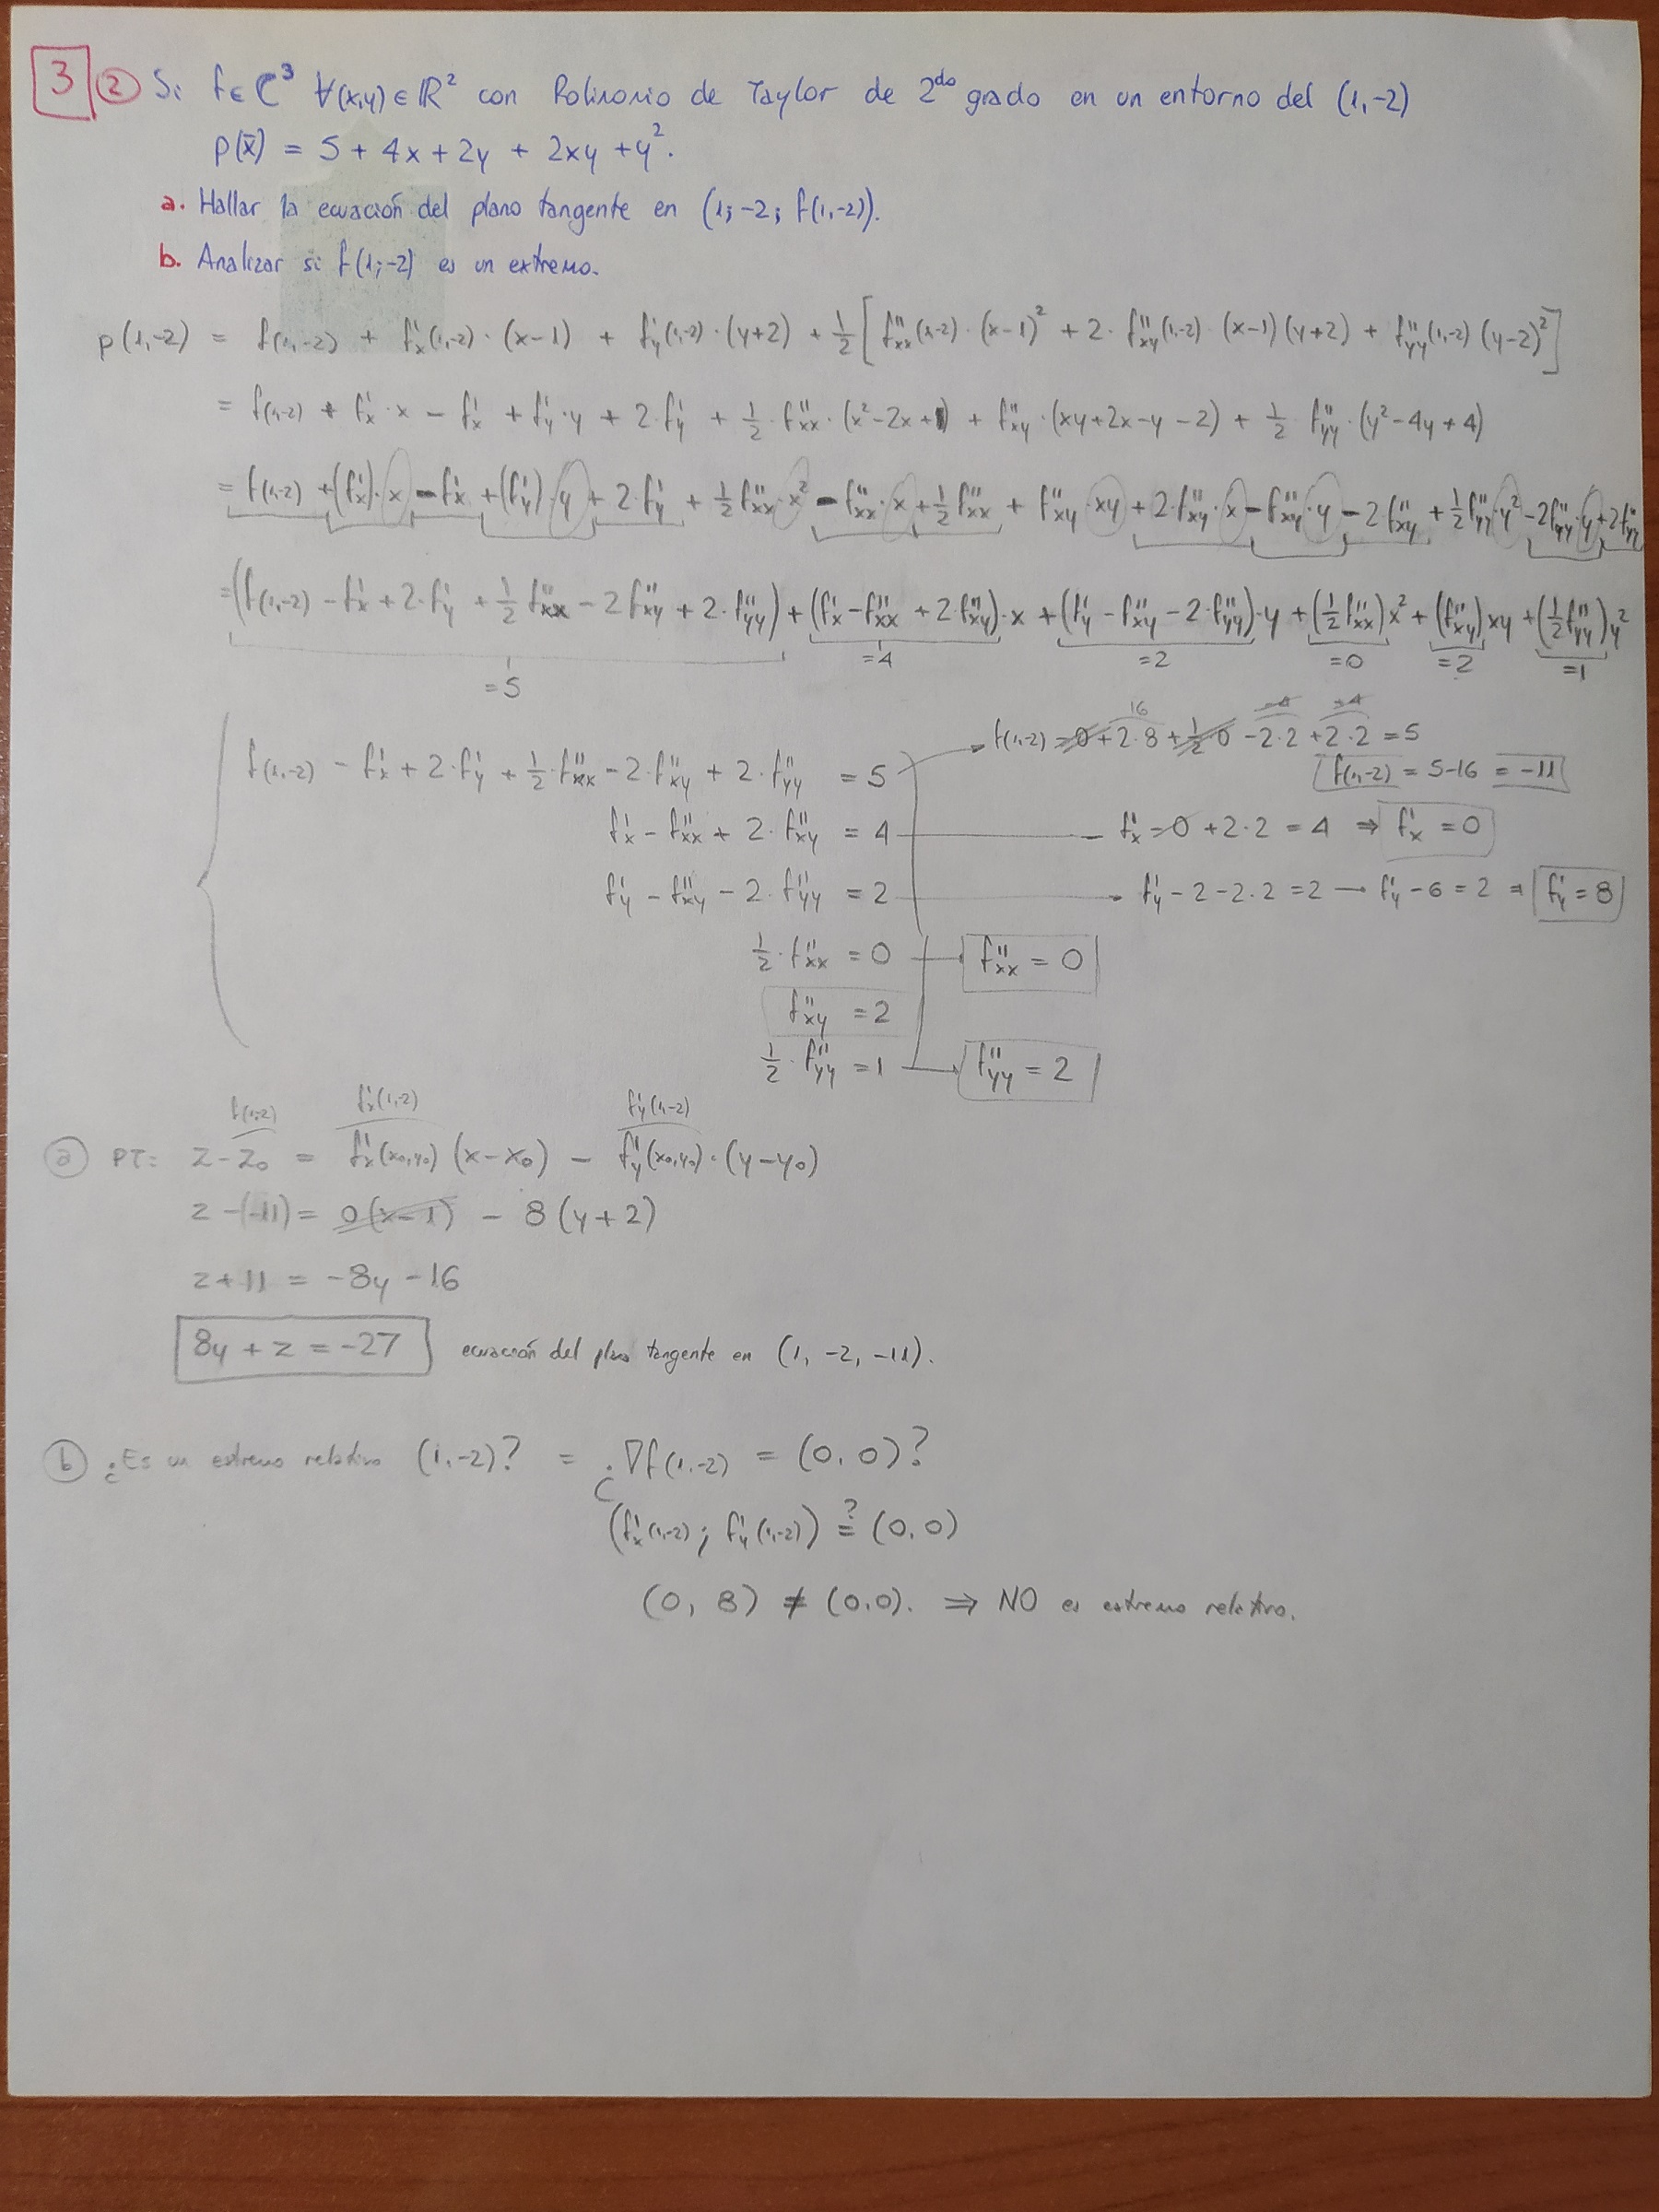 3 ② Si f ∈ C³ ∀(x,y) ∈ ℝ² con Polinomio de Taylor de 2do grado en un entorno del (1,-2)
p(x̄) = 5 + 4x + 2y + 2xy + y².
a. Hallar la ecuación del plano tangente en (1; -2; f(1,-2)).
b. Analizar si f(1;-2) es un extremo.
p(1,-2) = f(1,-2) + f'x(1,-2)·(x-1) + f'y(1,-2)·(y+2) + ½[f''xx(1,-2)·(x-1)² + 2·f''xy(1,-2)·(x-1)(y+2) + f''yy(1,-2)(y-2)²]
= f(1,-2) + f'x·x - f'x + f'y·y + 2·f'y + ½·f''xx·(x²-2x+1) + f''xy·(xy+2x-y-2) + ½ f''yy·(y²-4y+4)
= f(1,-2) + (f'x)·x - f'x + (f'y)·y + 2·f'y + ½f''xx·x² - f''xx·x + ½f''xx + f''xy·xy + 2·f''xy·x - f''xy·y - 2·f''xy + ½f''yy·y² - 2f''yy·y + 2f''yy
= (f(1,-2) - f'x + 2·f'y + ½f''xx - 2f''xy + 2·f''yy) + (f'x - f''xx + 2f''xy)·x + (f'y - f''xy - 2·f''yy)·y + (½f''xx)x² + (f''xy)xy + (½f''yy)y²
=5 =4 =2 =0 =2 =1
16 -4 +4
f(1,-2) - f'x + 2·f'y + ½·f''xx - 2·f''xy + 2·f''yy = 5 f(1,-2) = 0 + 2·8 + ½0 - 2·2 + 2·2 = 5
f(1,-2) = 5-16 = -11
f'x - f''xx + 2·f''xy = 4 f'x - 0 + 2·2 = 4 ⇒ f'x = 0
f'y - f''xy - 2·f''yy = 2 f'y - 2 - 2·2 = 2 → f'y - 6 = 2 ⇒ f'y = 8
½·f''xx = 0 → f''xx = 0
f''xy = 2
½·f''yy = 1 → f''yy = 2
f(1,-2) f'x(1,-2) f'y(1,-2)
ⓐ PT: z - z₀ = f'x(x₀,y₀)(x-x₀) - f'y(x₀,y₀)·(y-y₀)
z -(-11) = 0(x-1) - 8(y+2)
z + 11 = -8y - 16
8y + z = -27 ecuación del plano tangente en (1, -2, -11).
ⓑ ¿Es un extremo relativo (1,-2)? = ¿∇f(1,-2) = (0,0)?
(f'x(1,-2); f'y(1,-2)) ≟ (0,0)
(0, 8) ≠ (0,0). ⇒ NO es extremo relativo.